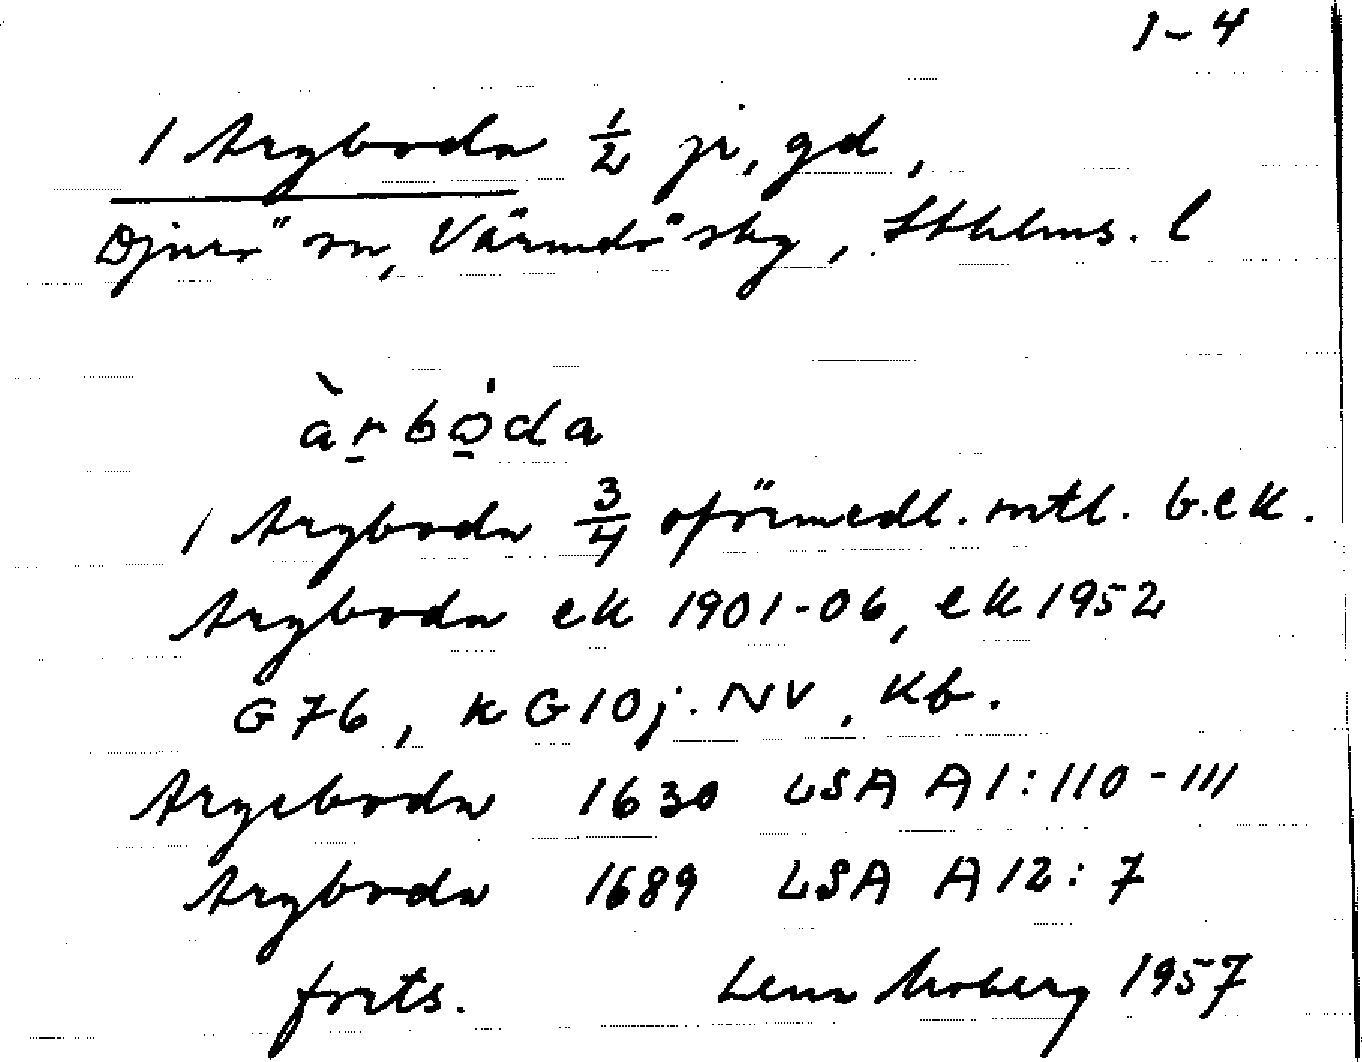 1-4
1 Aryboda 1/2 jr, gd,
Djurö sn, Värmdö skg, Sthlms. l
àrbóda
1 Aryboda 3/4 oförmedl. mtl. b. ek.
Aryboda ek 1901-06, ek 1952
G76, k G10j. NV, Kb.
Aryeboda 1630 LSA A1:110-111
Aryboda 1689 LSA A12:7
forts. Lena Moberg 1957